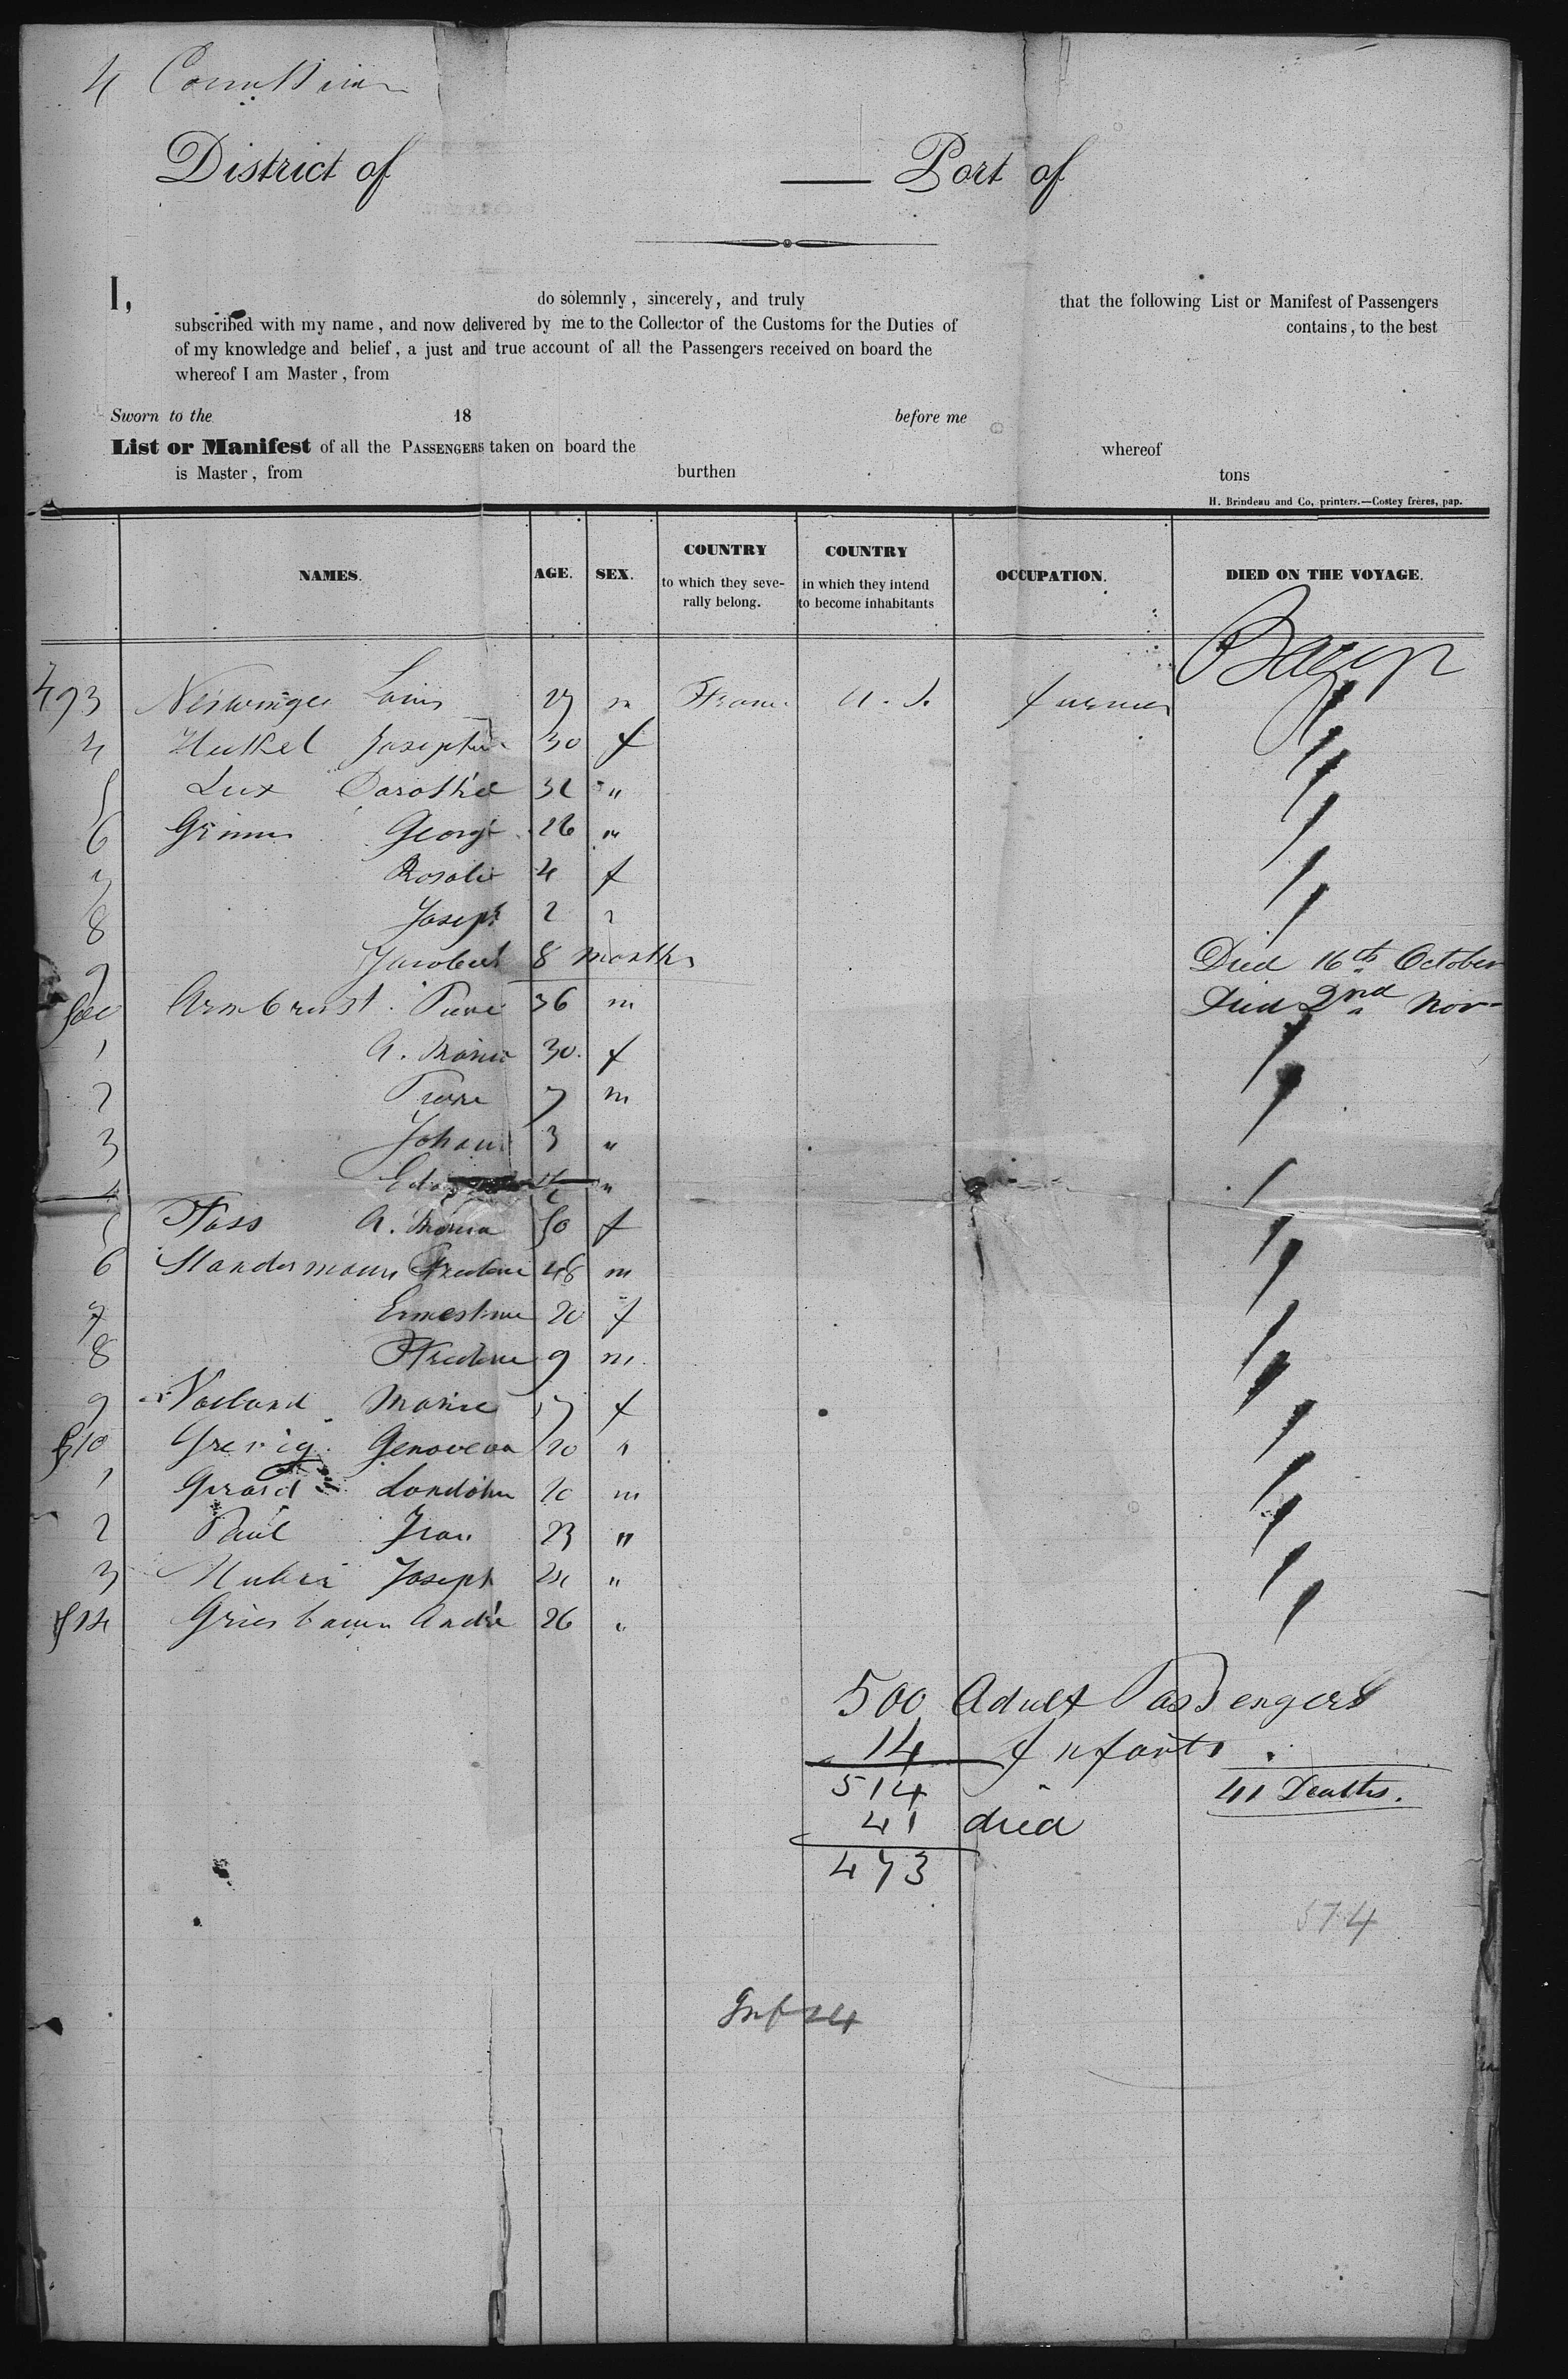 4
District of Port of
I, do solemnly, sincerely, and truly that the following List or Manifest of Passengers
subscribed with my name, and now delivered by me to the Collector of the Customs for the Duties of contains, to the best
of my knowledge and belief, a just and true account of all the Passengers received on board the
whereof I am Master, from
Sworn to the 18 before me
List or Manifest of all the PASSENGERS taken on board the whereof
is Master, from burthen tons
H. Brindeau and Co, printers.—Costey frères, pap.
NAMES. AGE. SEX. COUNTRY to which they seve- rally belong. COUNTRY in which they intend to become inhabitants OCCUPATION. DIED ON THE VOYAGE.
493 Louis 27 m U. S. farmer
4 Josephine 30 f
5 Lux Dorothée 32 "
6 Grimm George 26 "
7 Rosalie 4 f
8 Joseph 2
9 8 months Died 16th October
500 Armbrust Pierre 36 m Died 2nd Nov
1 A. Maria 30 f
2 Pierre 7 m
3 Johann 3 "
4 "
5 Fass A. Maria 50 f
6 48 m
7 Ernestine 20 f
8 9 m
9 Marie 17 f
510 Genoveva 20 "
1 Girard 20 m
2 Paul Jean 23 "
3 Huber Joseph 24 "
514 Griesbaum André 26 "
500 Adult Passengers
14 Infants
514 41 Deaths.
41 died
473
514
Inf 14